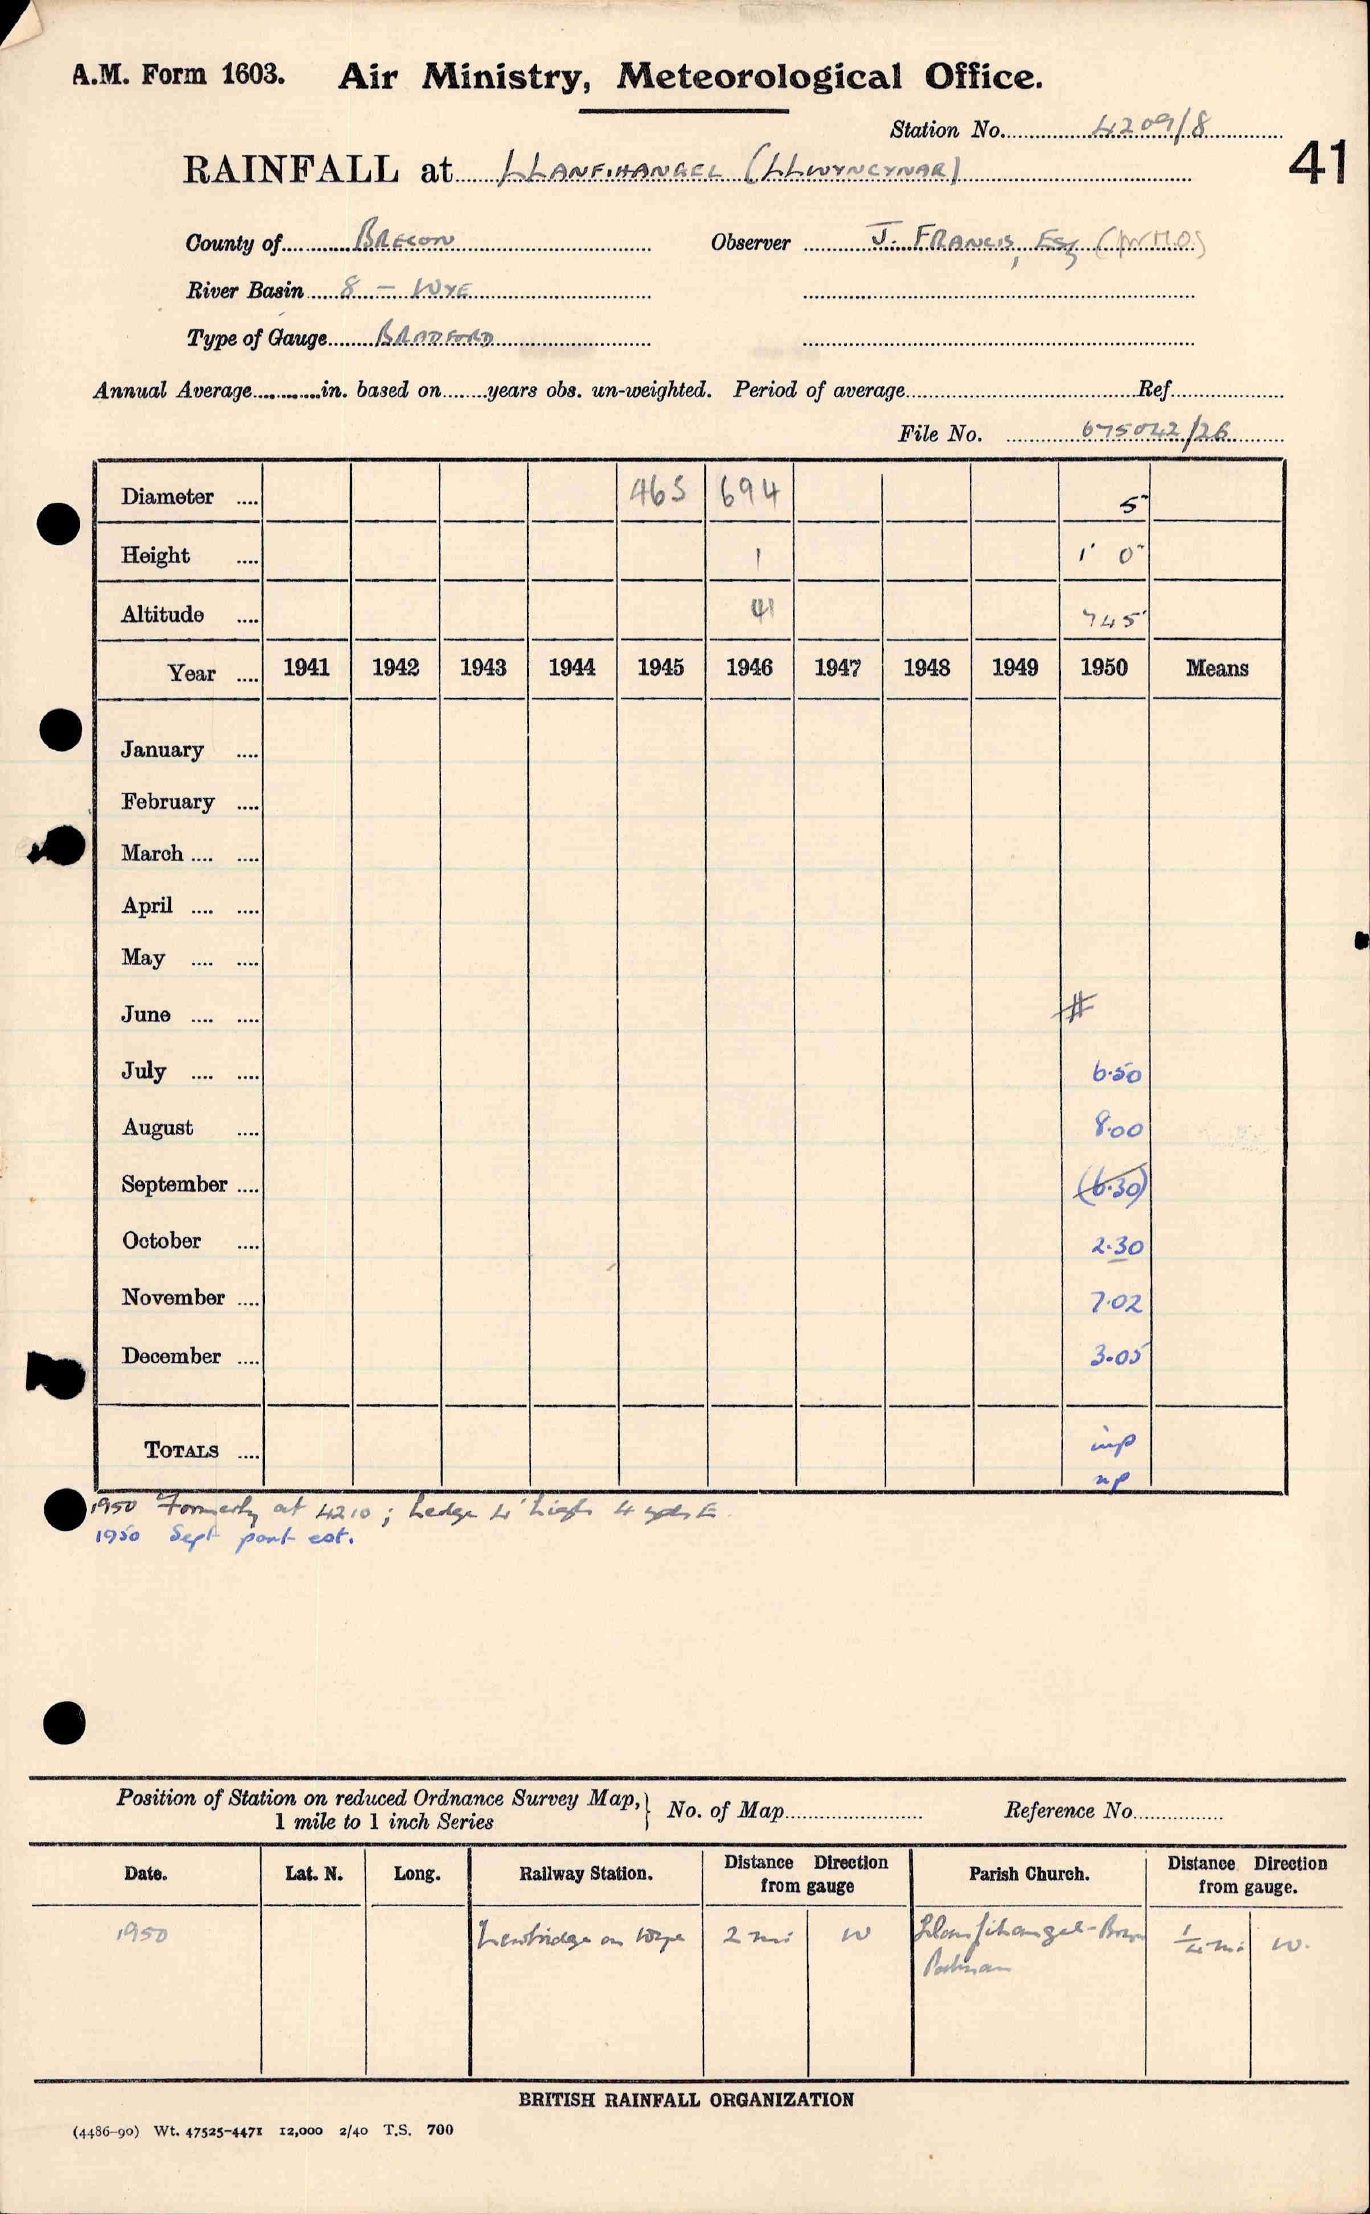 A.M. Form 1603. Air Ministry, Meteorological Office.
Station No. 4209/8
41
RAINFALL at LLANFIHANGEL (LLWYNCYNAR)
County of BRECON Observer J. FRANCIS, Esq
River Basin 8 - WYE
Type of Gauge BRADFORD
Annual Average in. based on years obs. un-weighted. Period of average Ref.
File No. 675042/26
Diameter 465 694 5"
Height 1 1' 0"
Altitude 41 745'
Year 1941 1942 1943 1944 1945 1946 1947 1948 1949 1950 Means
January
February
March
April
May
June
July 6.50
August 8.00
September (6.30)
October 2.30
November 7.02
December 3.05
TOTALS imp
np
1950 Formerly at 4210; hedge 4' high 4 yds E
1950 Sept part est.
Position of Station on reduced Ordnance Survey Map,
1 mile to 1 inch Series
No. of Map Reference No.
Date. Lat. N. Long. Railway Station. Distance Direction from gauge Parish Church. Distance Direction from gauge.
1950 Newbridge on Wye 2 mi W Llanfihangel-Bryn Pabuan 1/4 mi W.
BRITISH RAINFALL ORGANIZATION
(4486-90) Wt. 47525-4471 12,000 2/40 T.S. 700